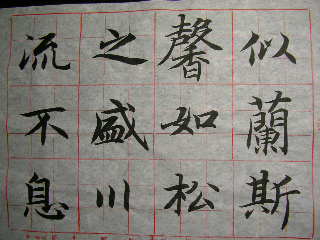 似蘭斯
馨如松
之盛川
流不息